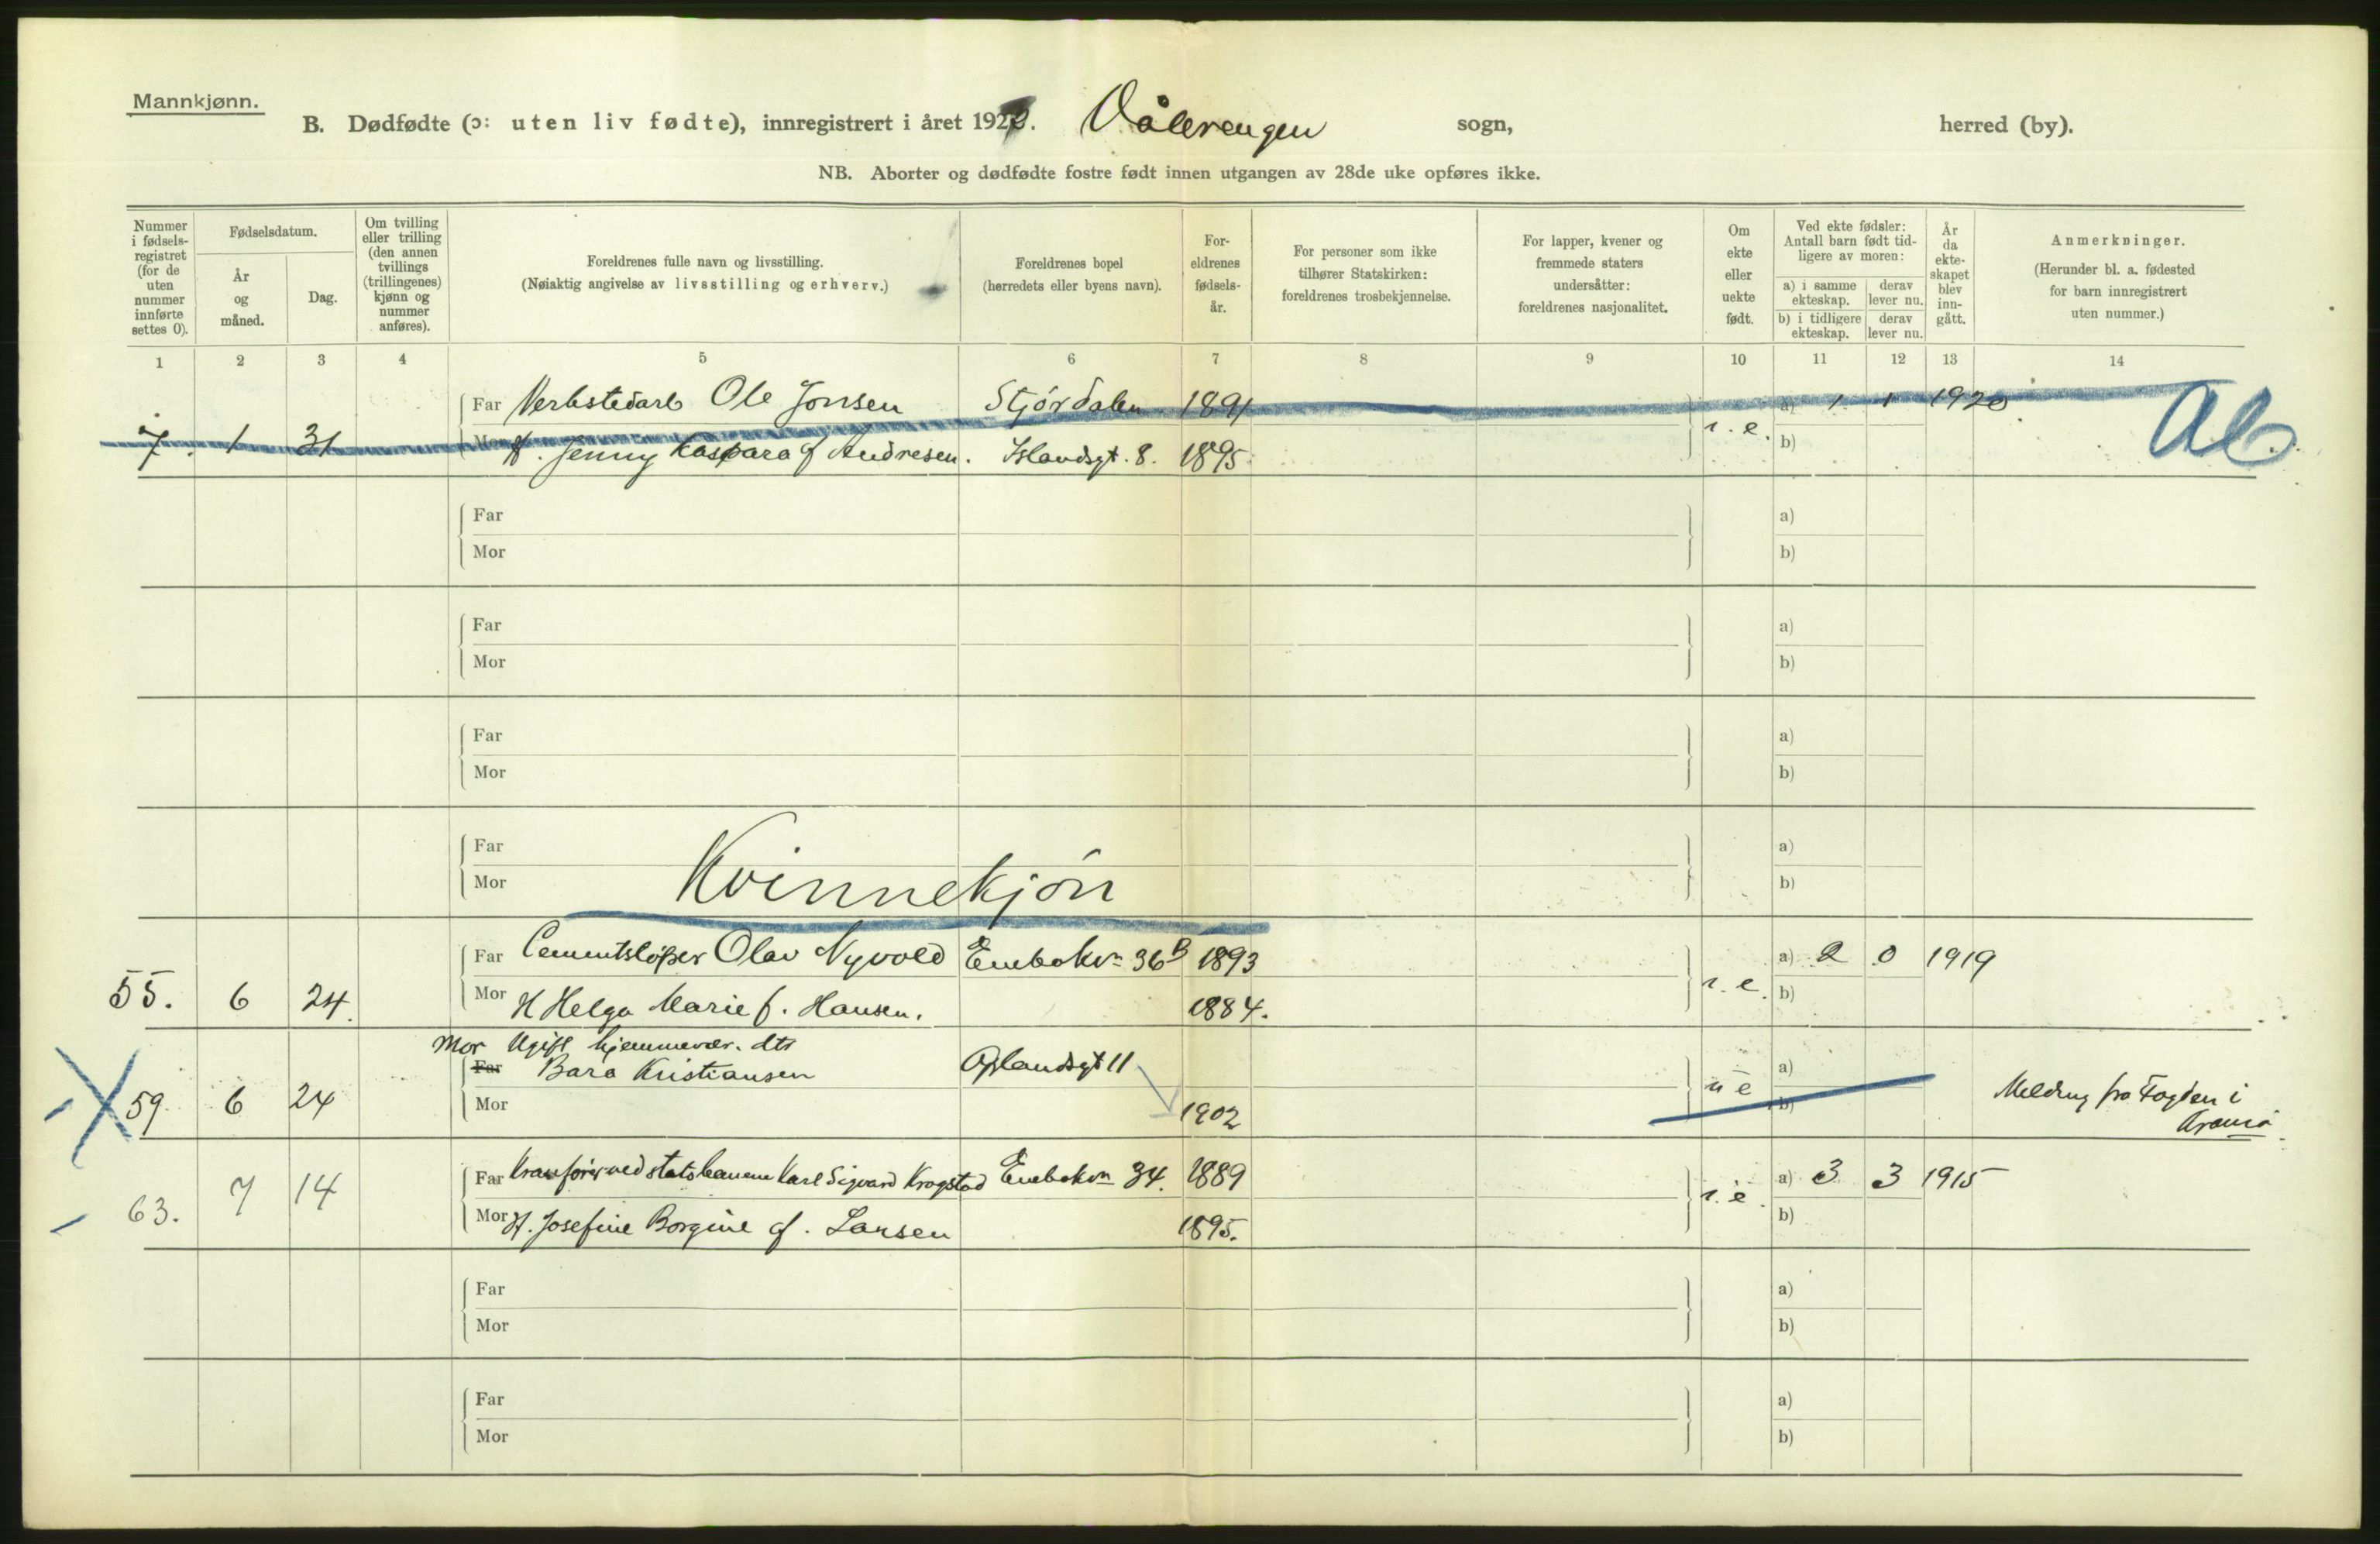 Mannkjønn.
B. Dødfødte (ɔ: uten liv fødte), innregistrert i året 192 . Vålerengen sogn, herred (by).
NB. Aborter og dødfødte fostre født innen utgangen av 28de uke opføres ikke.
Nummer i fødsels-registret (for de uten nummer innførte settes 0).
Fødselsdatum.
År og måned.
Dag.
Om tvilling eller trilling (den annen tvillings (trillingenes) kjønn og nummer anføres).
Foreldrenes fulle navn og livsstilling.
(Nøiaktig angivelse av livsstilling og erhverv.)
Foreldrenes bopel
(herredets eller byens navn).
For-eldrenes fødsels-år.
For personer som ikke tilhører Statskirken: foreldrenes trosbekjennelse.
For lapper, kvener og fremmede staters undersåtter: foreldrenes nasjonalitet.
Om ekte eller uekte født.
Ved ekte fødsler: Antall barn født tid-ligere av moren:
a) i samme ekteskap.
derav lever nu.
b) i tidligere ekteskap.
derav lever nu.
År da ekte-skapet blev inn-gått.
Anmerkninger.
(Herunder bl. a. fødested for barn innregistrert uten nummer.)
1 2 3 4 5 6 7 8 9 10 11 12 13 14
Far Verkstedarb Ole Jonsen Stjørdalen 1891 a) 1 1 1920
7. 1 31 Mor H. Jenny Kaspara f Andresen. Islandsgt. 8. 1895 e. b)
Far a)
Mor b)
Far a)
Mor b)
Far a)
Mor b)
Far a)
Mor b)
Kvinnekjön
Far Cementstöper Olav Nyvold Enebakvn 36B 1893 a) 2 0 1919
55. 6 24. Mor H Helga Marie f. Hansen. 1884. e. b)
Mor Ugift hjemmevær. dtr
Far Bara Kristiansen Oplandsgt 11 u e a)
59 6 24 Mor 1902 b) Meldng fra Fogden i
Far Kranförer ved statsbanene Karl Sigvard Krogstad Enebakvn 34. 1889 a) 3 3 1915
63. 7 14 Mor H. Josefine Borgine f. Larsen 1895. e. b)
Far a)
Mor b)
Far a)
Mor b)